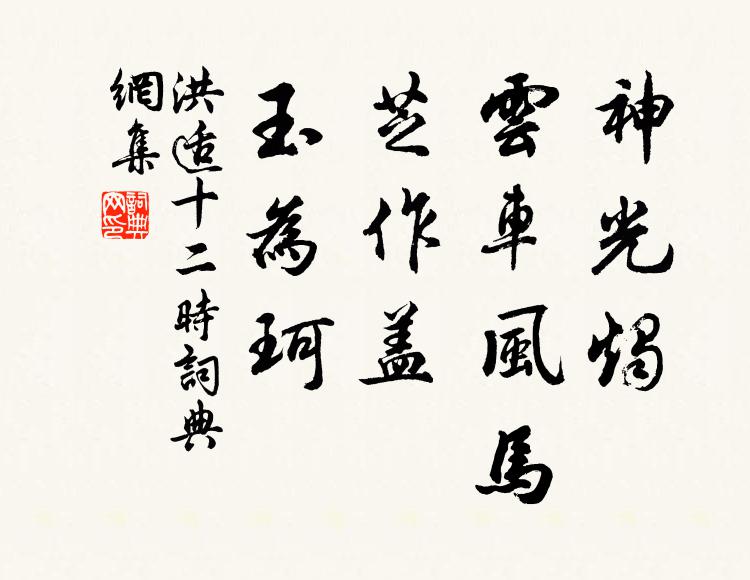 神光燭
雲車風馬
芝作蓋
玉為珂
洪适十二時詞典
網集
詞典網印